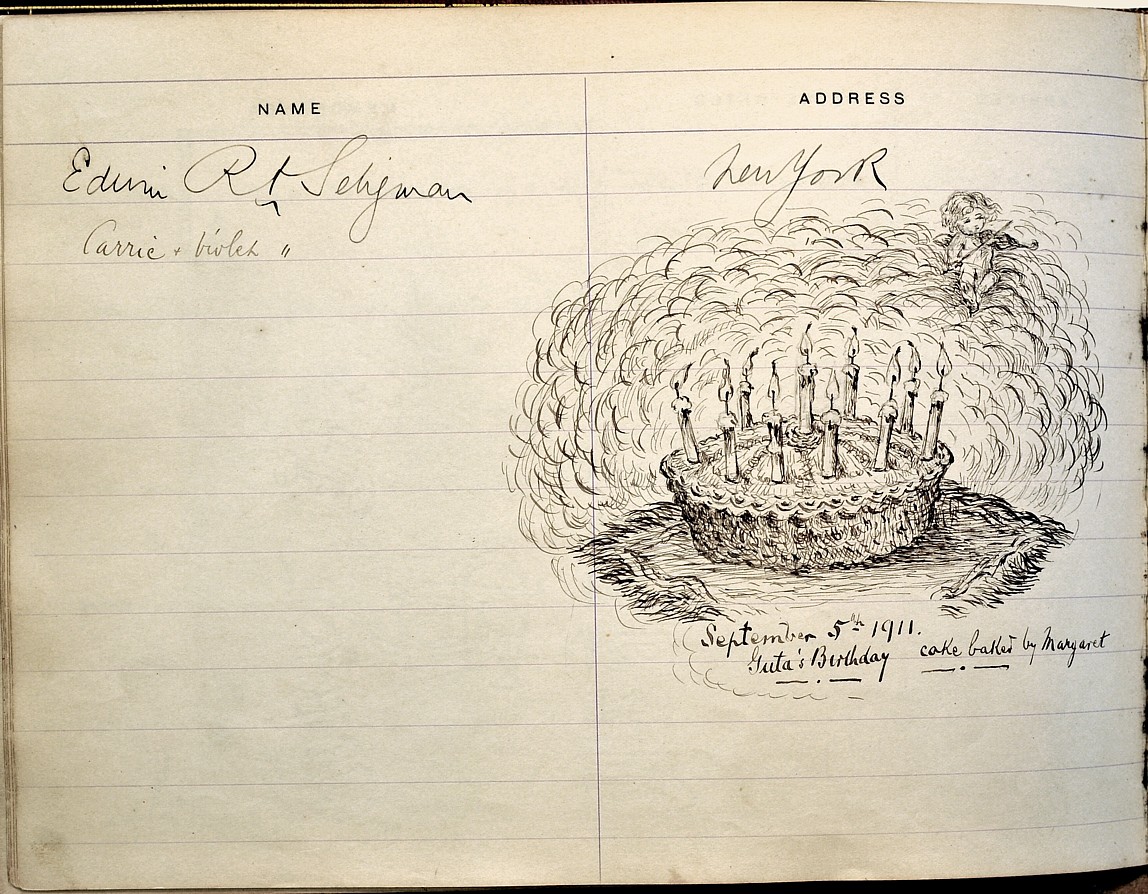 NAME
ADDRESS
Edwin R A Seligman
New York
Carrie + Violet "
September 5th 1911.
Guta's Birthday cake baked by Margaret